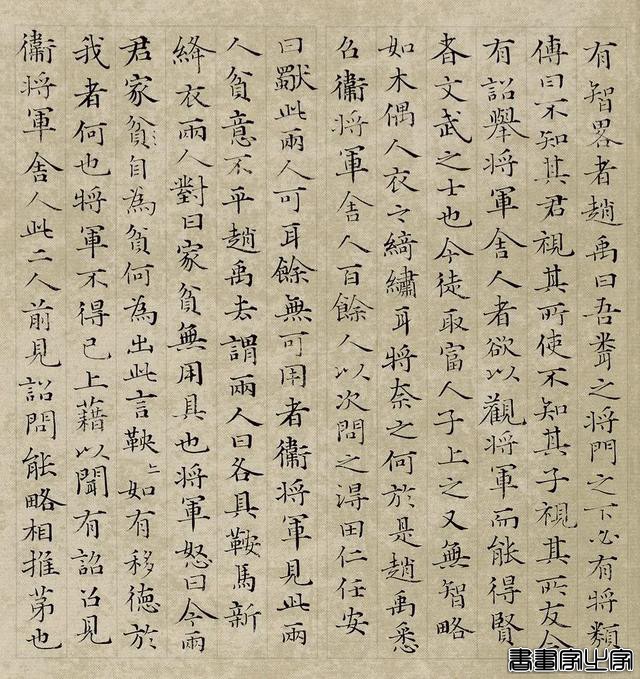 有智畧者趙禹曰吾聞之將門之下必有將類
傳曰不知其君視其所使不知其子視其所友今
有詔舉將軍舍人者欲以觀將軍而能得賢
者文武之士也今徒取富人子上之又無智略
如木偶人衣之綺繡耳將奈之何於是趙禹悉
召衛將軍舍人百餘人以次問之得田仁任安
曰獨此兩人可耳餘無可用者衛將軍見此兩
人貧意不平趙禹去謂兩人曰各具鞍馬新
絳衣兩人對曰家貧無用具也將軍怒曰今兩
君家貧自為貧何為出此言鞅〻如有移德於
我者何也將軍不得已上藉以聞有詔召見
衛將軍舍人此二人前見詔問能略相推第也